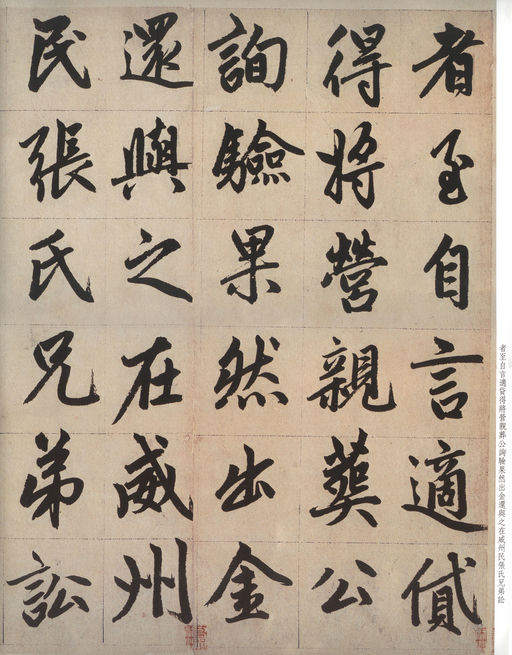 者至自言適貸
得將營親葬公
詢驗果然出金
還與之在威州
民張氏兄弟訟
者至自言適貸得將營親葬公詢驗果然出金還與之在威州民張氏兄弟訟